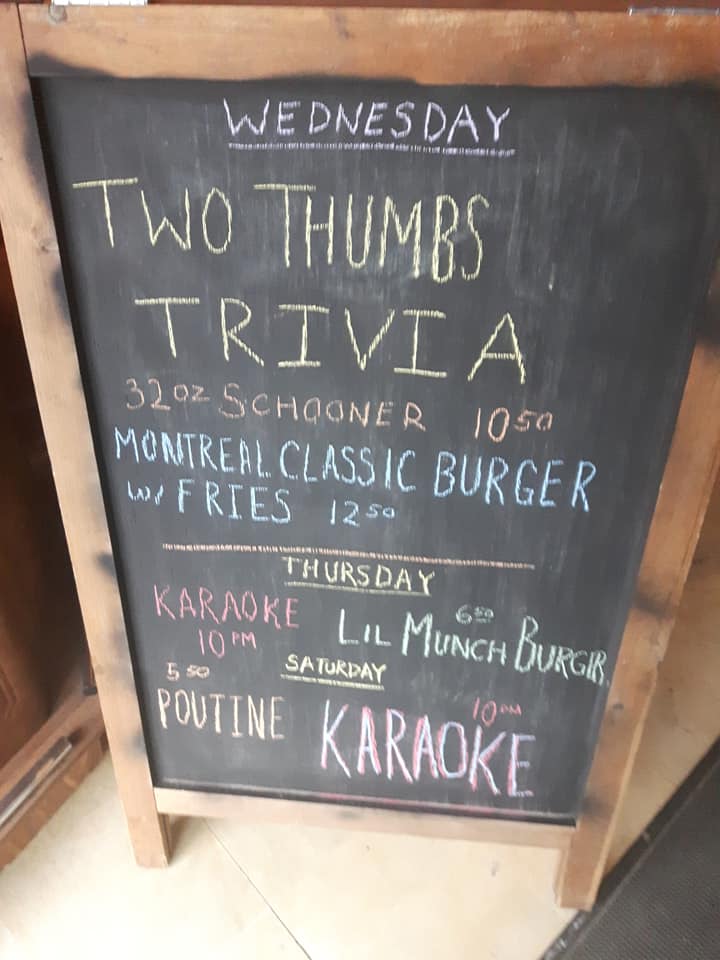 WEDNESDAY
TWO THUMBS
TRIVIA
32 OZ SCHOONER 10 50
MONTREAL CLASSIC BURGER
W/ FRIES 12 50
THURSDAY
KARAOKE
10 PM
6 50
LIL MUNCH BURGR
SATURDAY
5 50
POUTINE
10 PM
KARAOKE